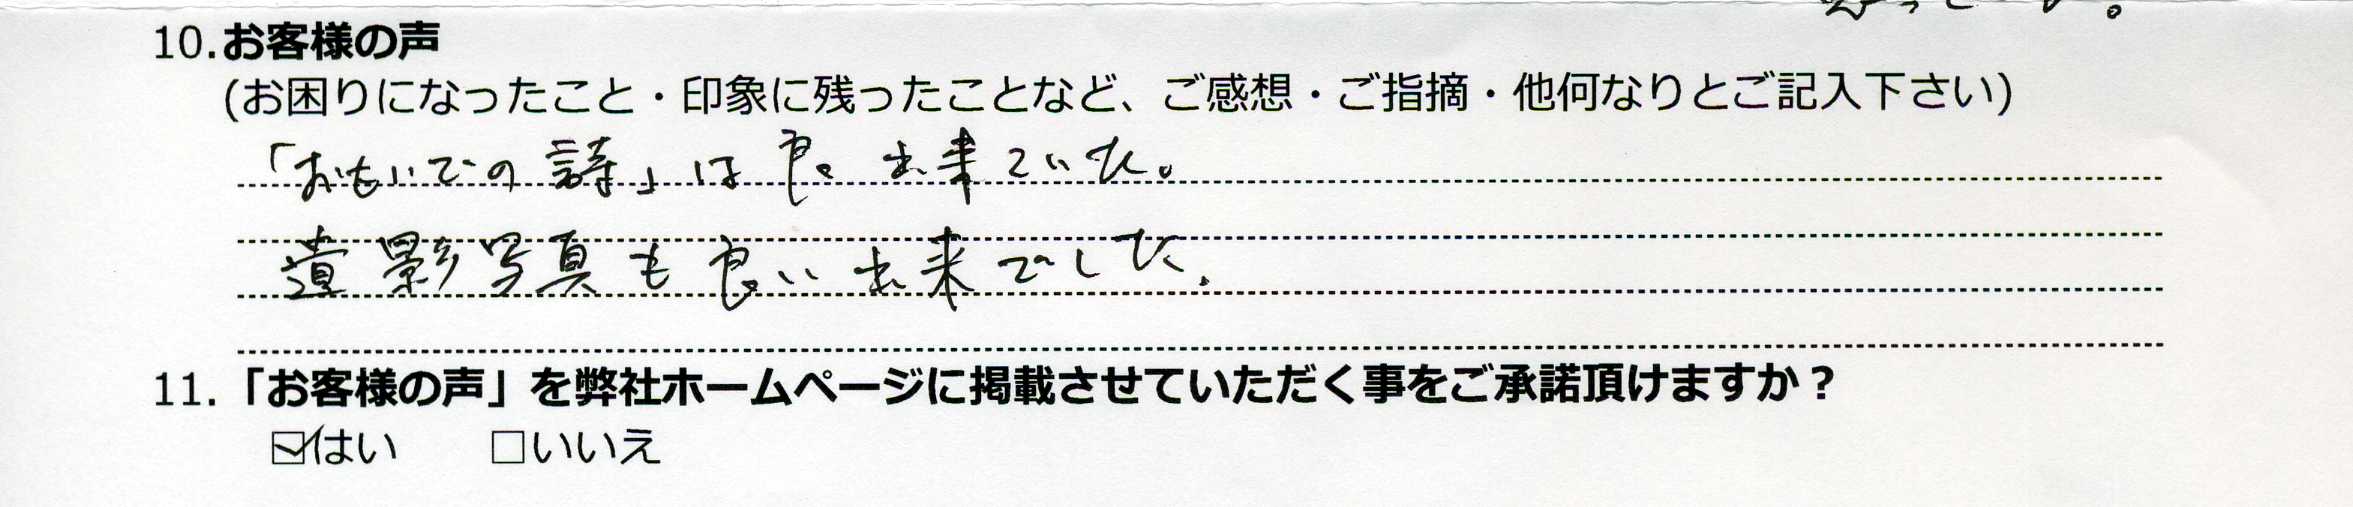 10.お客様の声
(お困りになったこと・印象に残ったことなど、ご感想・ご指摘・他何なりとご記入下さい)
「おもいでの詩」は良く出来ていた。
遺影写真も良い出来でした.
11.「お客様の声」を弊社ホームページに掲載させていただく事をご承諾頂けますか？
☑はい □いいえ